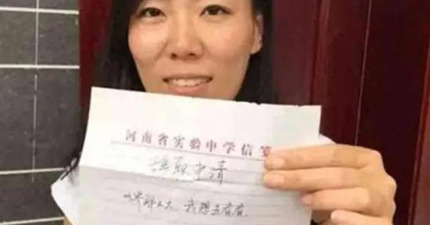 河南省实验中学信笺
辞职申请
世界那么大,我想去看看